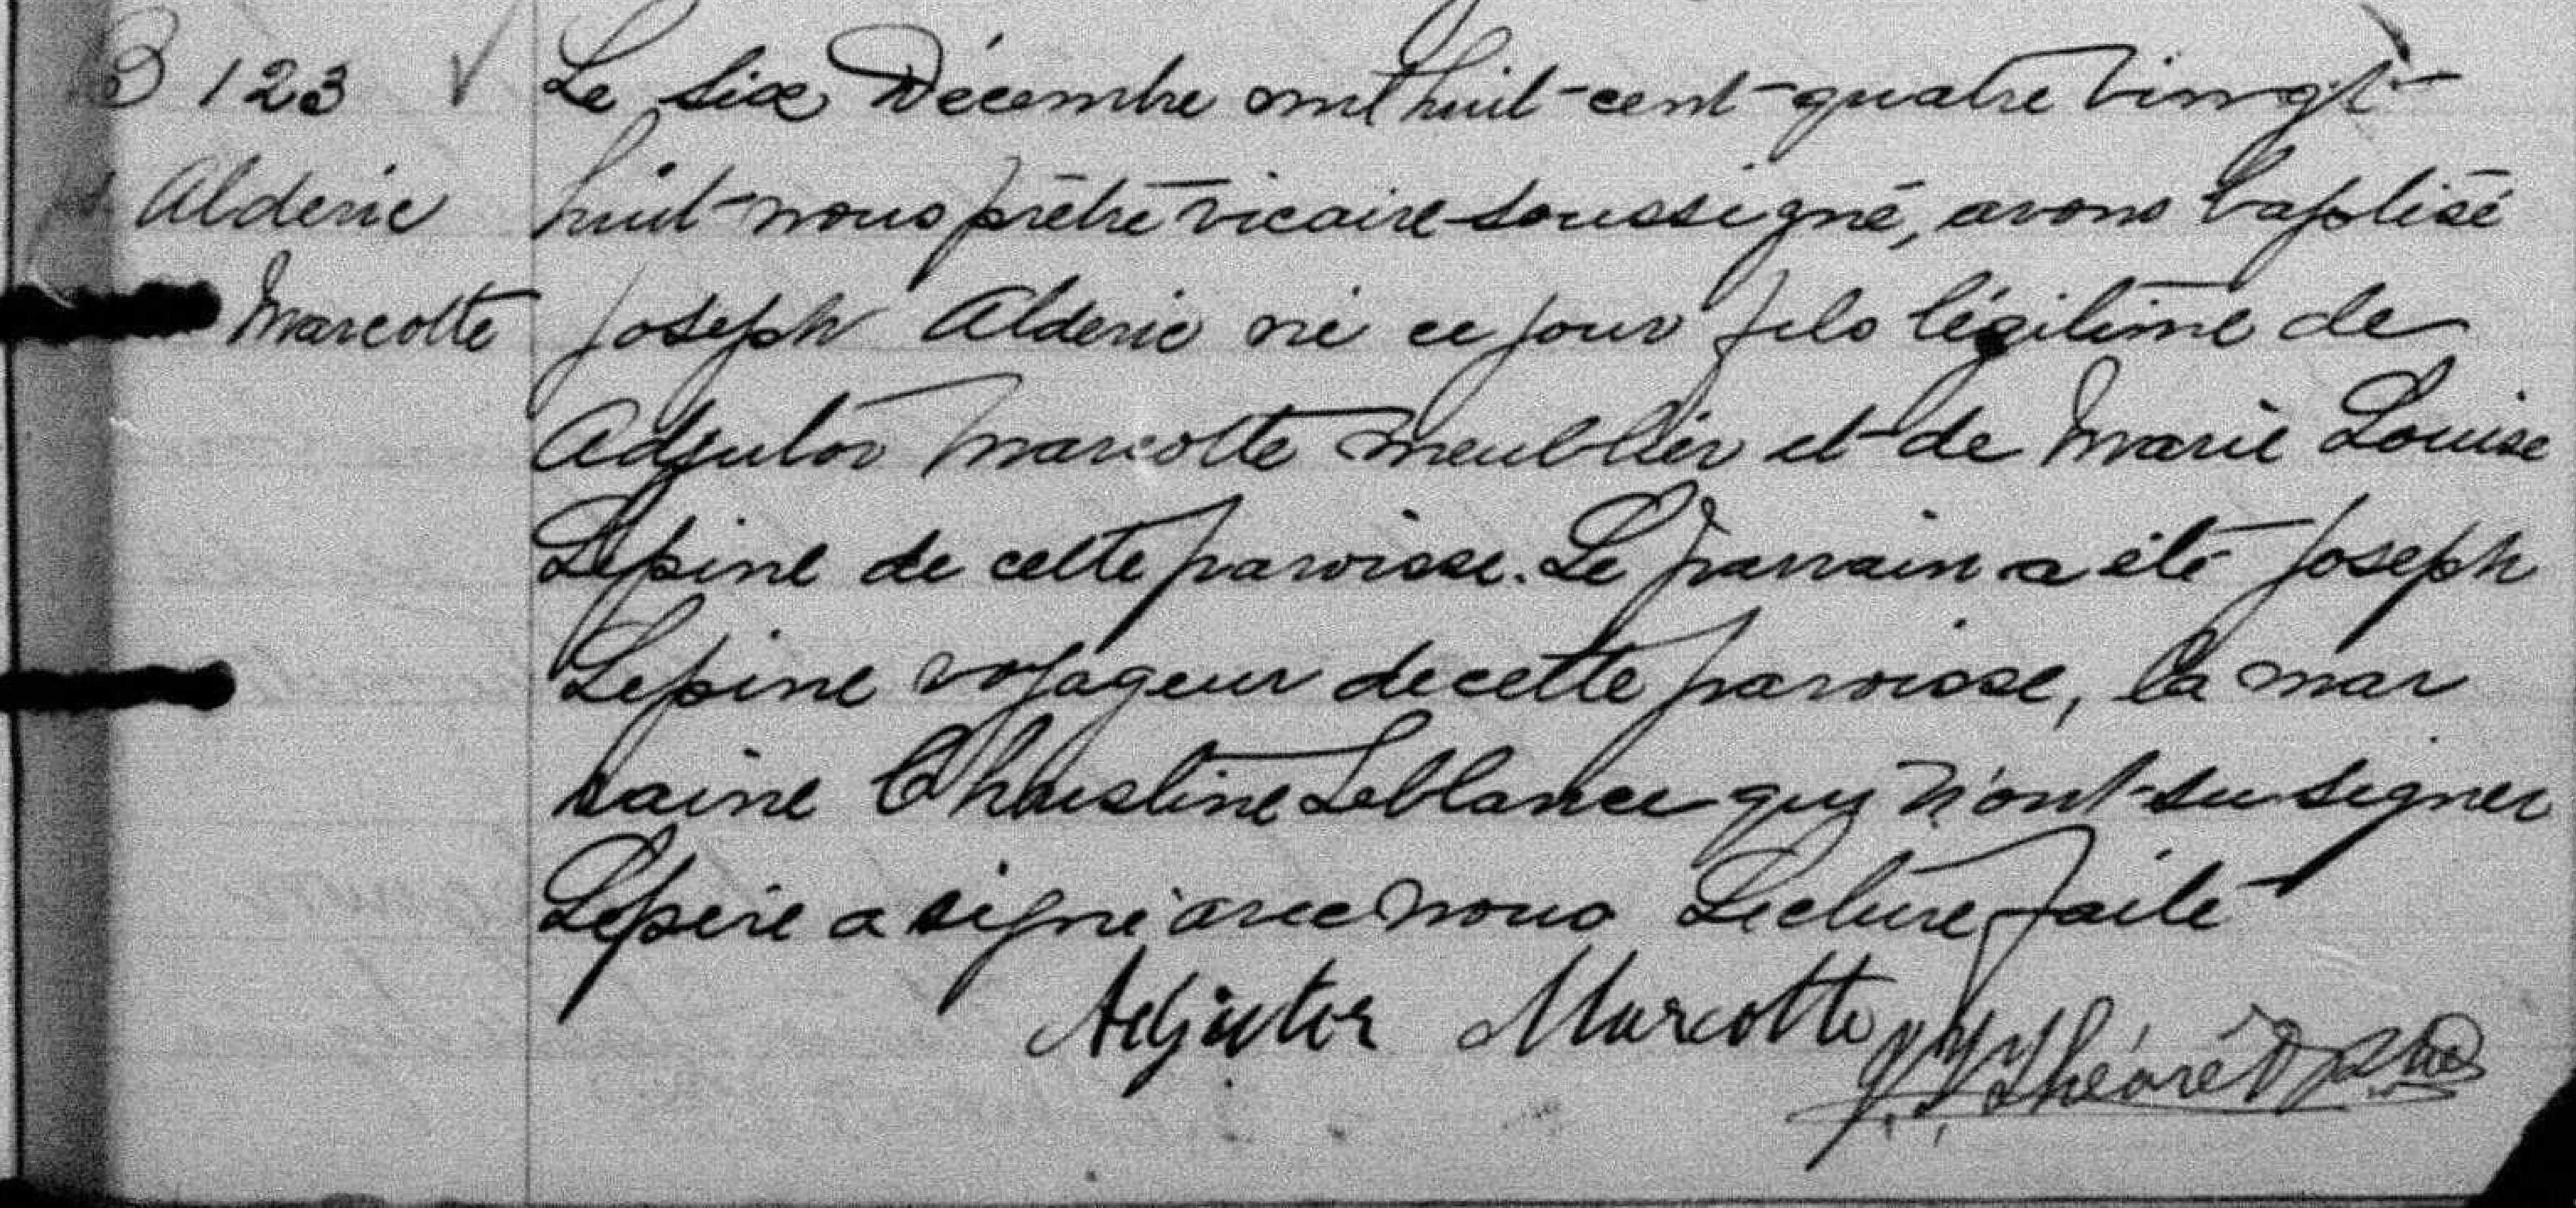 B 123
Le six Décembre mil huit-cent-quatre vingt-
huit nous prêtre vicaire soussigné, avons baptisé
Alderic
Joseph Alderic né ce jour fils légitime de
Marcotte
Adjutor Marcotte meublier et de Marie Louise
Lepine de cette paroisse. Le parrain a été Joseph
Lepine voyageur de cette paroisse, la mar
raine Christine Leblance qui n'ont su signer
Le père a signé avec nous Lecture faite
Adjutor Marcotte